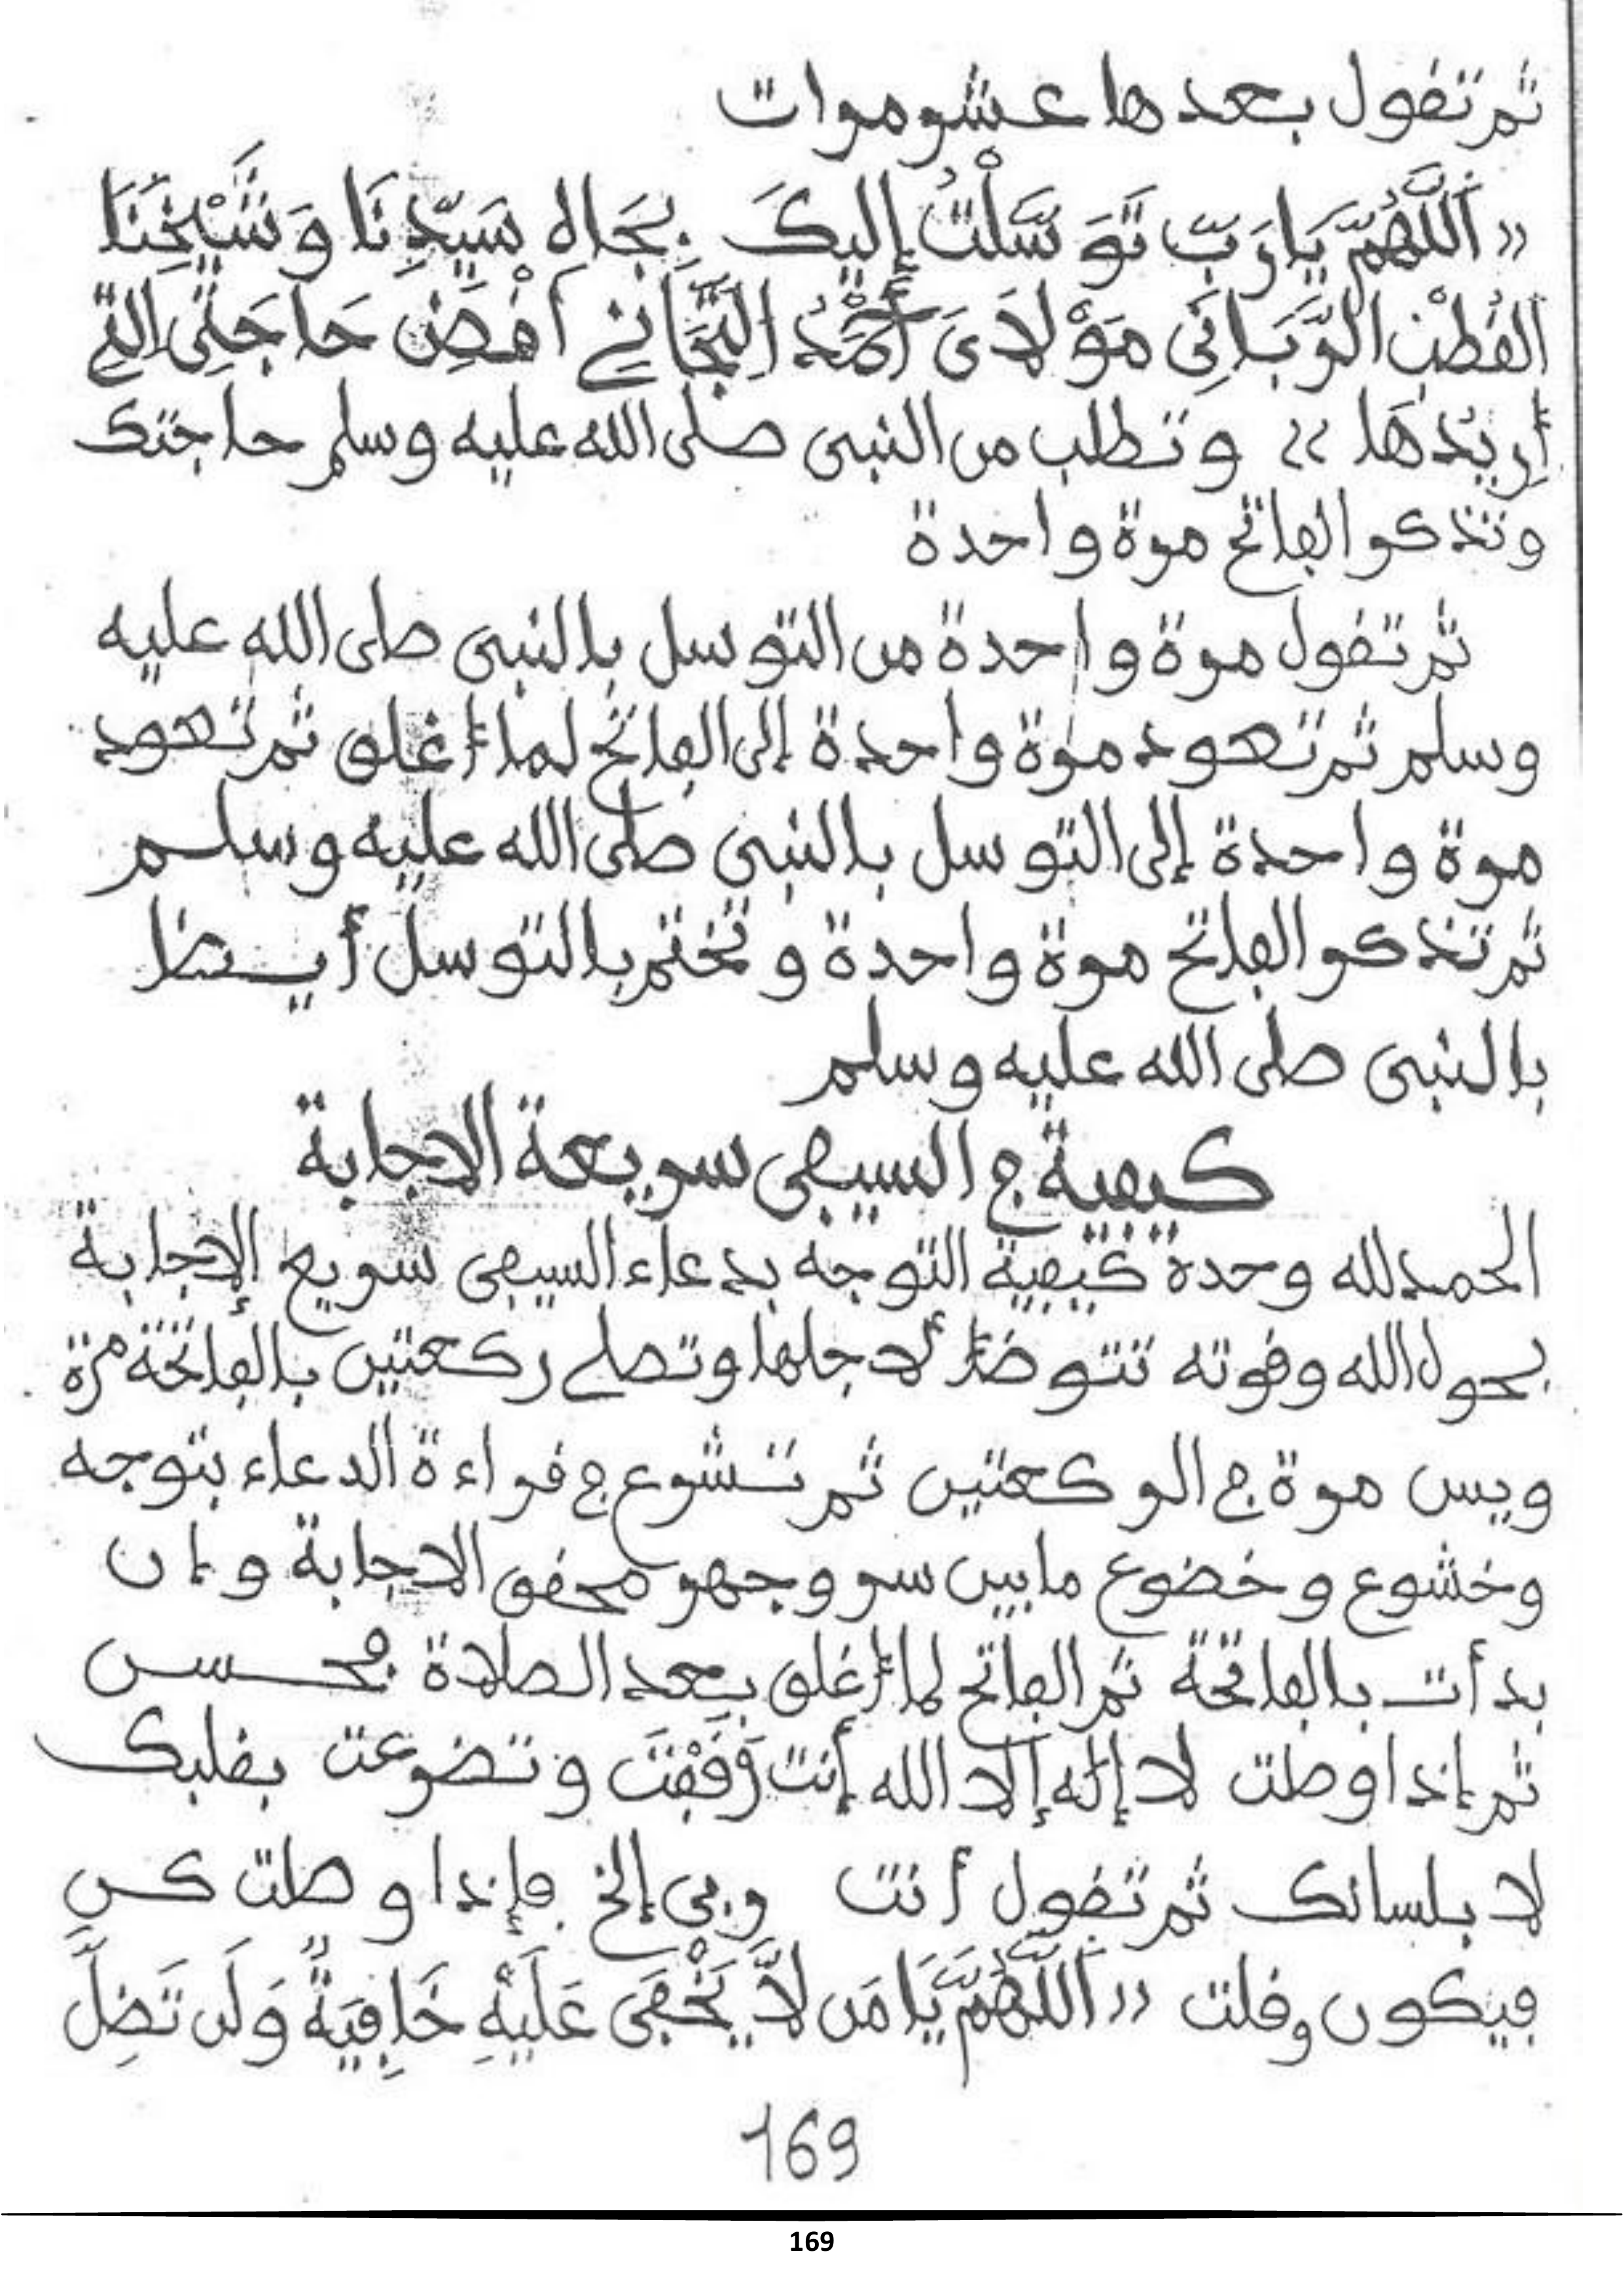 ثم تقول بعدها عشر مرات
« اَللَّهُمَّ يَا رَبِّ تَوَسَّلْتُ إِلَيكَ بِجَاهِ سَيِّدِنَا وَشَيْخِنَا
القُطْبِ الرَّبَّانِي مَوْلَايَ أَحْمَدُ التِّجَّانِي اَقْضِ حَاجَتِي التِي
أُرِيدُهَا » وتطلب من النبي صلى الله عليه وسلم حاجتك
وتذكر الفاتح مرة واحدة
ثم تقول مرة واحدة من التوسل بالنبي صلى الله عليه
وسلم ثم تعود مرة واحدة إلى الفاتح لما أغلق ثم تعود
مرة واحدة إلى التوسل بالنبي صلى الله عليه وسلم
ثم تذكر الفاتح مرة واحدة وتختم بالتوسل أيضا
بالنبي صلى الله عليه وسلم
كيفية في السيفي سريعة الاجابة
الحمد لله وحده كيفية التوجه بدعاء السيفي سريع الإجابة
بحول الله وقوته تتوضأ لأجلها وتصلي ركعتين بالفاتحة مرة
ويس مرة في الركعتين ثم تشرع في قراءة الدعاء بتوجه
وخشوع وخضوع ما بين سر وجهر محقق الاجابة وإن
بدأت بالفاتحة ثم الفاتح لما أغلق بعد الصلاة فحسن
ثم إذا وصلت لا إله إلا الله أنت وَقَفْتَ وتضرعت بقلبك
لا بلسانك ثم تقول أنت ربي إلخ فإذا وصلت كن
فيكون وقلت « اَللَّهُمَّ يَا مَن لَّا يَخْفَى عَلَيْهِ خَافِيَةٌ وَلَن تَضِلَّ
169
169